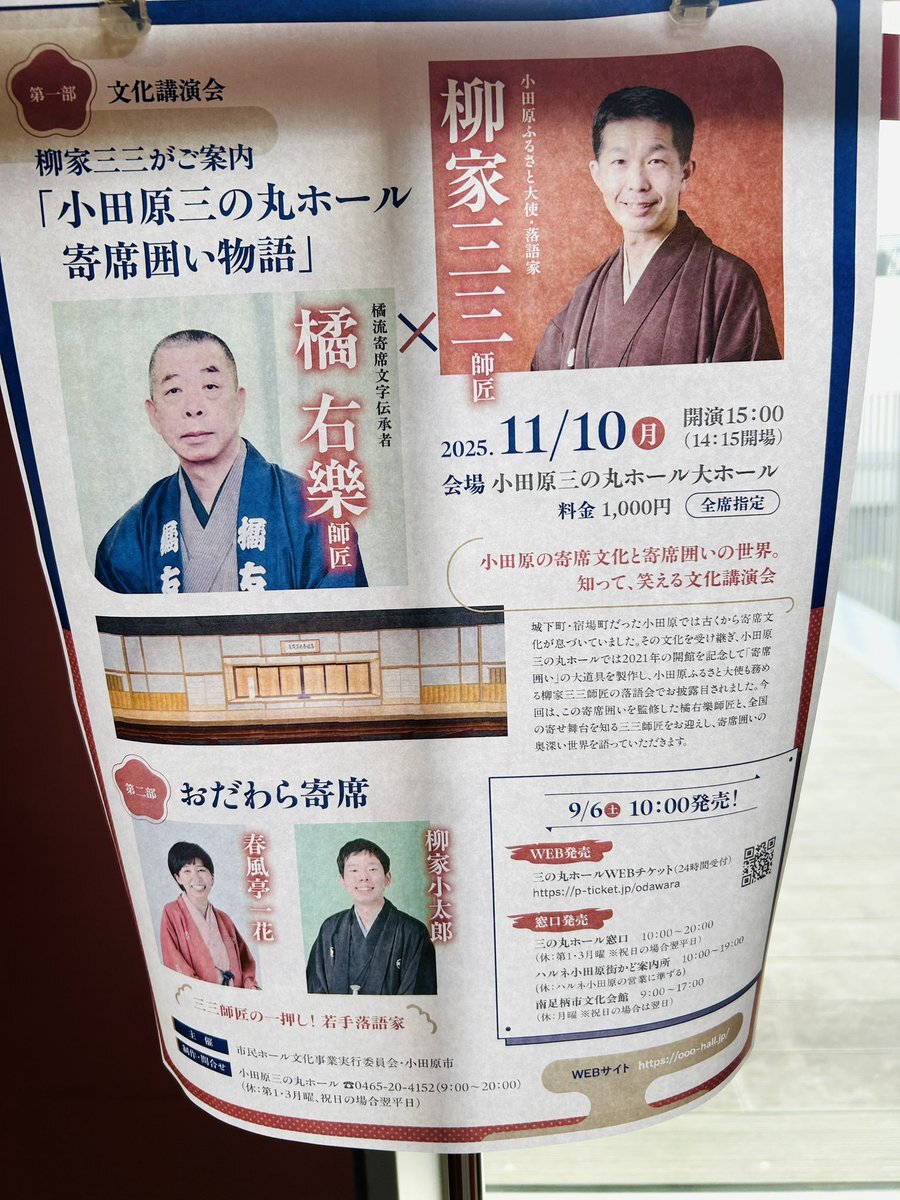 第一部
文化講演会
柳家三三がご案内
「小田原三の丸ホール
寄席囲い物語」
小田原ふるさと大使・落語家
柳家三三師匠
×
橘流寄席文字伝承者
橘右樂師匠
2025. 11/10 月
開演15:00
(14:15開場)
会場 小田原三の丸ホール大ホール
料金 1,000円 全席指定
小田原の寄席文化と寄席囲いの世界。
知って、笑える文化講演会
城下町・宿場町だった小田原では古くから寄席文
化が息づいていました。その文化を受け継ぎ、小田原
三の丸ホールでは2021年の開館を記念して「寄席
囲い」の大道具を製作し、小田原ふるさと大使も務め
る柳家三三師匠の落語会でお披露目されました。今
回は、この寄席囲いを監修した橘右樂師匠と、全国
の寄せ舞台を知る三三師匠をお迎えし、寄席囲いの
奥深い世界を語っていただきます。
第二部
おだわら寄席
春風亭一花
柳家小太郎
三三師匠の一押し! 若手落語家
9/6 土 10:00発売!
WEB発売
三の丸ホールWEBチケット(24時間受付)
https://p-ticket.jp/odawara
窓口発売
三の丸ホール窓口 10:00～20:00
(休:第1・3月曜 ※祝日の場合翌平日)
ハルネ小田原街かど案内所 10:00～19:00
(休:ハルネ小田原の営業に準ずる)
南足柄市文化会館 9:00～17:00
(休:月曜 ※祝日の場合は翌日)
主催
市民ホール文化事業実行委員会・小田原市
制作・問合せ
小田原三の丸ホール ☎0465-20-4152(9:00～20:00)
(休:第1・3月曜、祝日の場合翌平日)
WEBサイト https://ooo-hall.jp/